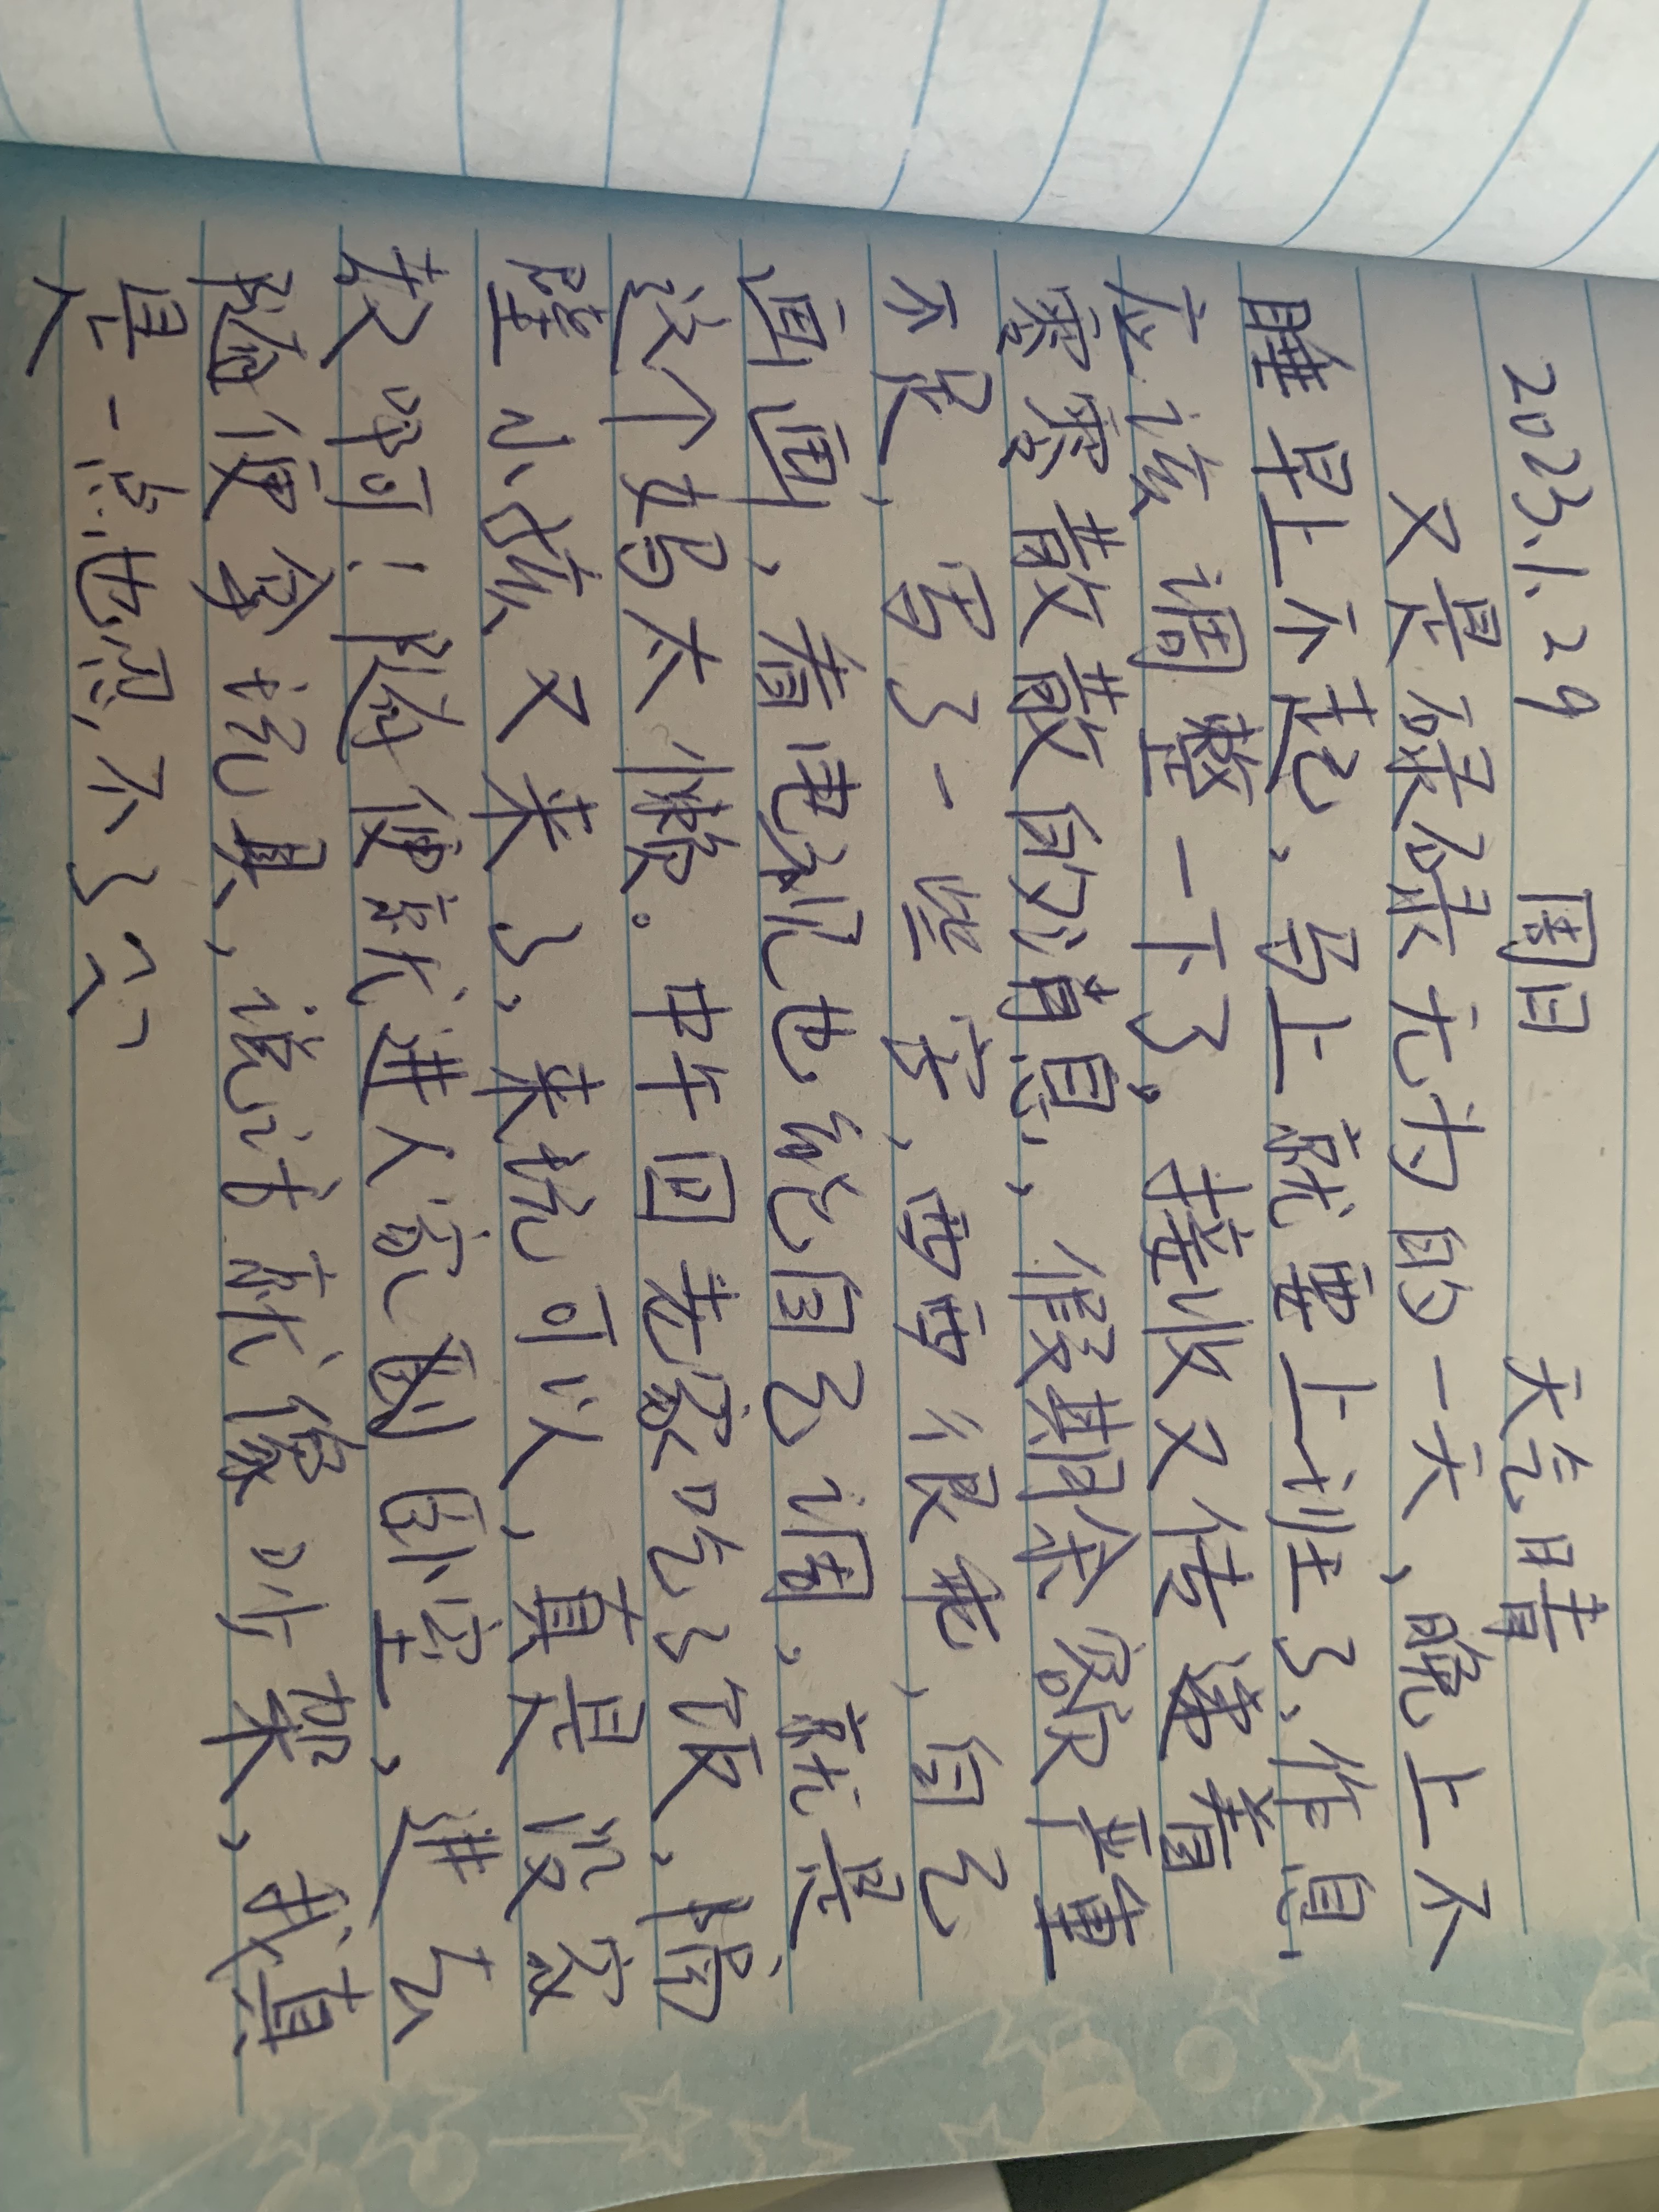 2023.1.29 周日 天气晴
又是碌碌无为的一天，晚上不
睡早上不起，马上就要上班了，作息
应该调整一下了。接收又传递着
零零散散的消息，假期余额严重
不足，写了一些字，西西很乖，自己
画画，看电视也能自己调，就是
这个妈太懒。中午回老家吃了饭，隔
壁小孩又来了，来玩可以，真是没家
教呀可！随便就进人家卧室，进去
随便拿玩具，说话就像吵架，我真
是一点也忍不了